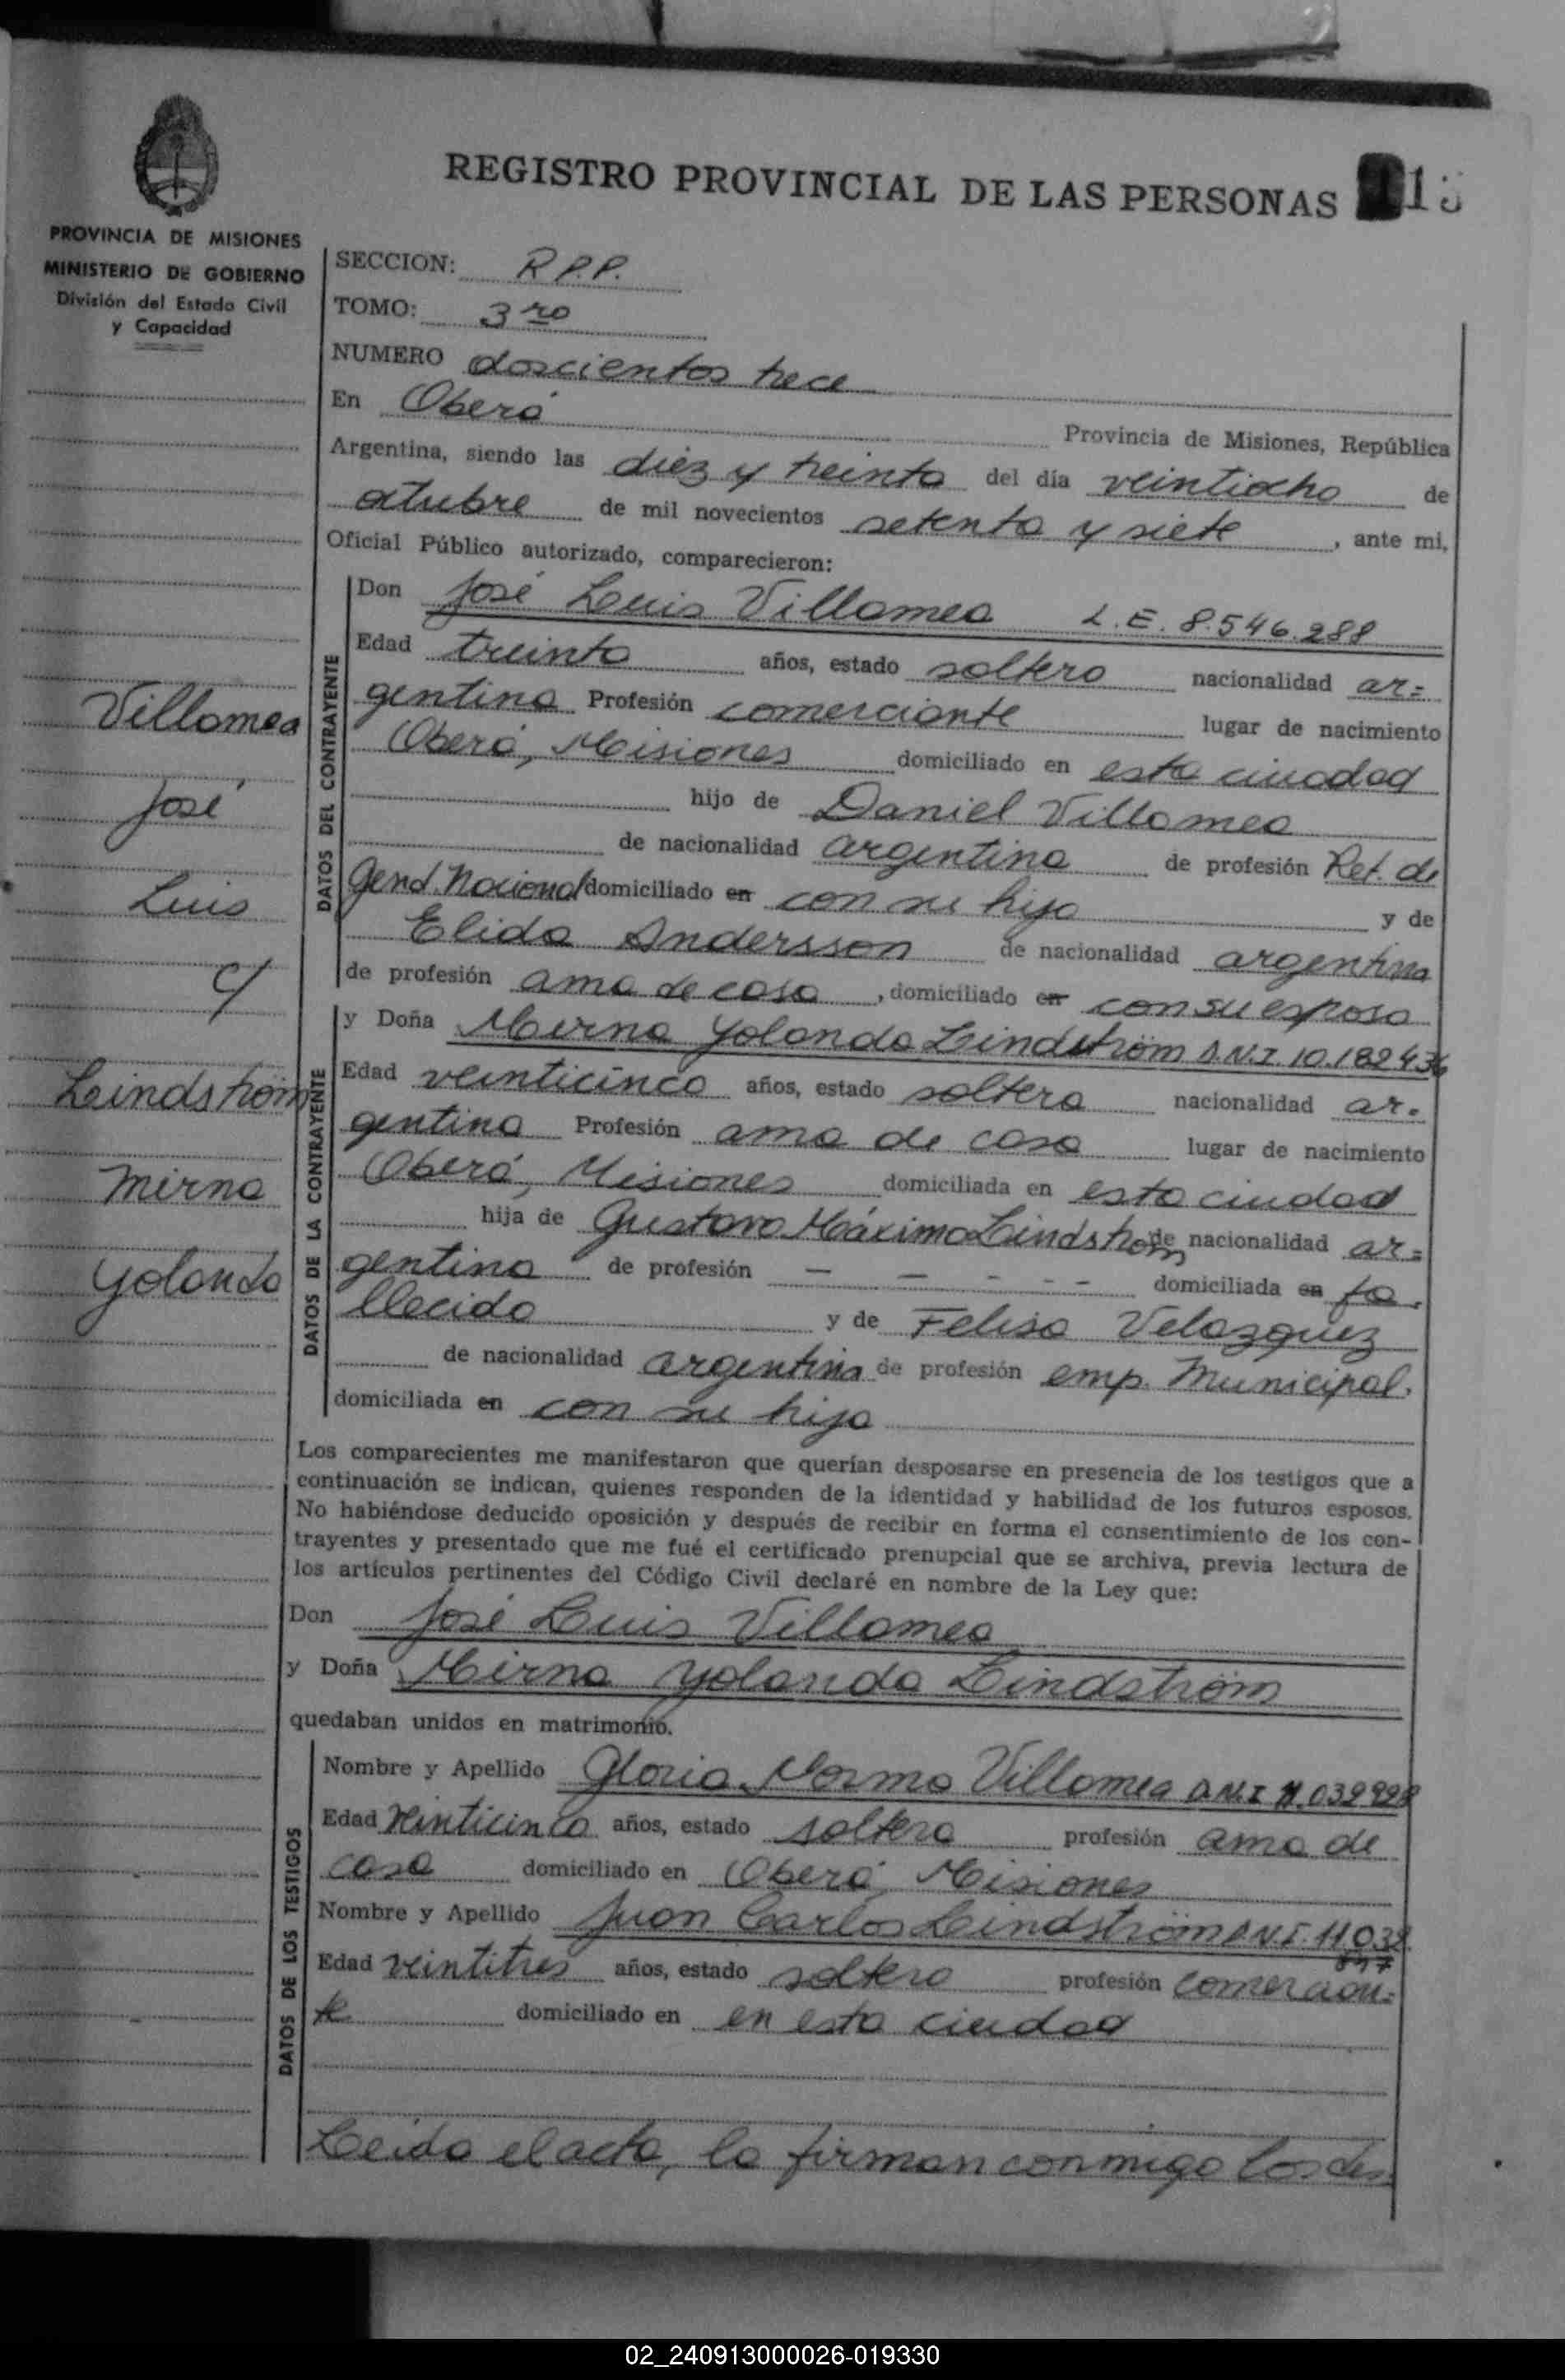 REGISTRO PROVINCIAL DE LAS PERSONAS
PROVINCIA DE MISIONES
MINISTERIO DE GOBIERNO
División del Estado Civil
y Capacidad
SECCION: R.P.P.
TOMO: 3ro
NUMERO doscientos trece
En Oberá Provincia de Misiones, República
Argentina, siendo las diez y treinta del día veintiocho de
octubre de mil novecientos setenta y siete, ante mi,
Oficial Público autorizado, comparecieron:
DATOS DEL CONTRAYENTE
Don José Luis Villamea L.E. 8.546.288
Edad treinta años, estado soltero nacionalidad ar=
gentina Profesión comerciante lugar de nacimiento
Oberá, Misiones domiciliado en esta ciudad
hijo de Daniel Villamea
de nacionalidad argentina de profesión Ret. de
Gend. Nacional domiciliado en con su hijo y de
Elida Andersson de nacionalidad argentina
de profesión ama de casa, domiciliado en con su esposo
DATOS DE LA CONTRAYENTE
y Doña Mirna Yolanda Lindström D.N.I 10.182436
Edad veinticinco años, estado soltera nacionalidad ar.
gentina Profesión ama de casa lugar de nacimiento
Oberá, Misiones domiciliada en esta ciudad
hija de Gustavo Máximo Lindström de nacionalidad ar=
gentina de profesión — — - - - domiciliada en fa.
llecido y de Felisa Velazquez
de nacionalidad argentina de profesión emp. Municipal.
domiciliada en con su hija
Villamea
José
Luis
c/
Lindström
Mirna
Yolanda
Los comparecientes me manifestaron que querían desposarse en presencia de los testigos que a
continuación se indican, quienes responden de la identidad y habilidad de los futuros esposos.
No habiéndose deducido oposición y después de recibir en forma el consentimiento de los con-
trayentes y presentado que me fué el certificado prenupcial que se archiva, previa lectura de
los artículos pertinentes del Código Civil declaré en nombre de la Ley que:
Don José Luis Villamea
y Doña Mirna Yolanda Lindström
quedaban unidos en matrimonio.
DATOS DE LOS TESTIGOS
Nombre y Apellido Gloria Norma Villamea D.N.I
Edad veinticinco años, estado soltera profesión ama de
casa domiciliado en Oberá, Misiones
Nombre y Apellido Juan Carlos Lindström D.N.I. 11.038.
Edad veintitres años, estado soltero profesión comercian=
te domiciliado en en esta ciudad
Leida el acta, la firman conmigo los des
02_240913000026-019330